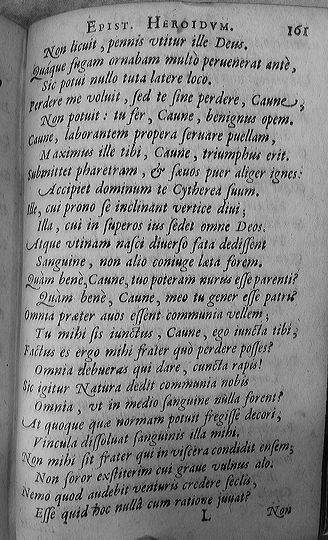 EPIST. HEROIDVM. 161
Non licuit, pennis vtitur ille Deus.
Quaque fugam ornabam multò peruenerat antè,
Sic potui nullo tuta latere loco.
Perdere me voluit, sed te sine perdere, Caune,
Non potuit: tu fer, Caune, benignus opem.
Caune, laborantem propera seruare puellam,
Maximus ille tibi, Caune, triumphus erit.
Submittet pharetram, & sæuos puer aliger ignes:
Accipiet dominum te Cytherea suum.
Ille, cui prono se inclinant vertice diui;
Illa, cui in superos ius sedet omne Deos.
Atque vtinam nasci diuerso fata dedissent
Sanguine, non alio coniuge læta forem.
Quàm benè, Caune, tuo poteram nurus esse parenti?
Quàm benè, Caune, meo tu gener esse patri?
Omnia præter auos essent communia vellem;
Tu mihi sis iunctus, Caune, ego iuncta tibi;
Factus es ergo mihi frater quò perdere posses?
Omnia debueras qui dare, cuncta rapis!
Sic igitur Natura dedit communia nobis
Omnia, vt in medio sanguine nulla forent?
At quoque quæ normam potuit fregisse decori,
Vincula dissoluat sanguinis illa mihi.
Non mihi sit frater qui in viscera condidit ensem;
Non soror exstiterim cui graue vulnus alo.
Nemo quod audebit venturis credere seclis,
Esse quid hoc nullâ cum ratione juuat?
L Non